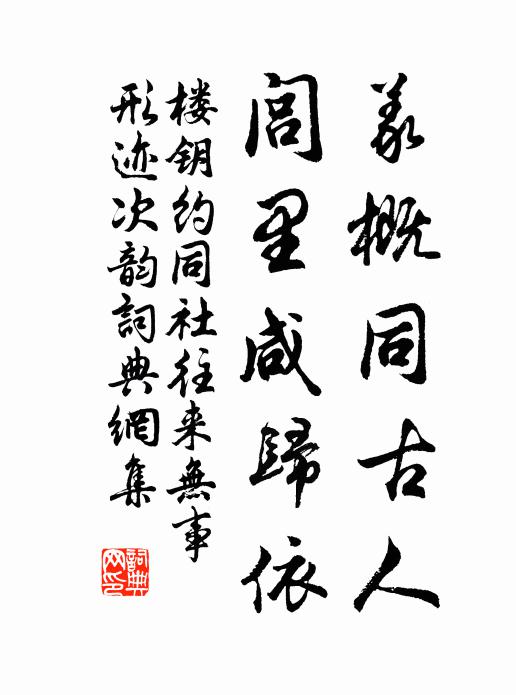 義概同古人
閭里咸歸依
楼钥约同社往来無事
形迹次韵詞典網集
詞典網印